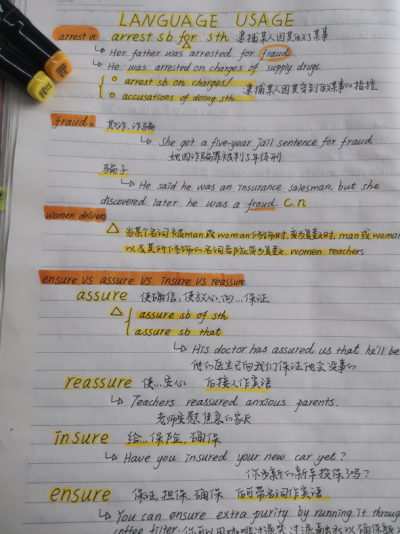 LANGUAGE USAGE
arrest vt arrest sb for sth 逮捕某人因其做了某事
↳ Her father was arrested for fraud.
↳ He was arrested on charges of supply drugs.
arrest sb on charges/
accusations of doing sth 逮捕某人因其受到做某事的指控
fraud n. 欺诈，诈骗
↳ She got a five-year jail sentence for fraud
她因诈骗罪被判5年徒刑
骗子
↳ He said he was an insurance salesman, but she
discovered later he was a fraud. C.n
women drivers
当某个名词被man或woman修饰时，变为复数时，man或woman
以及其所修饰的名词都应变为复数. women teachers
ensure vs assure vs insure vs reassure
assure 使确信，使放心，向…保证
assure sb of sth
assure sb that
↳ His doctor has assured us that he'll be
他的医生已向我们保证他会没事的
reassure 使…安心 后接人作宾语
↳ Teachers reassured anxious parents.
老师安慰焦急的家长
insure 给…保险，确保
↳ Have you insured your new car yet?
你为新的新车投保了吗？
ensure 保证，担保，确保 后可常名词作宾语
↳ You can ensure extra purity by running it through
coffee filter.